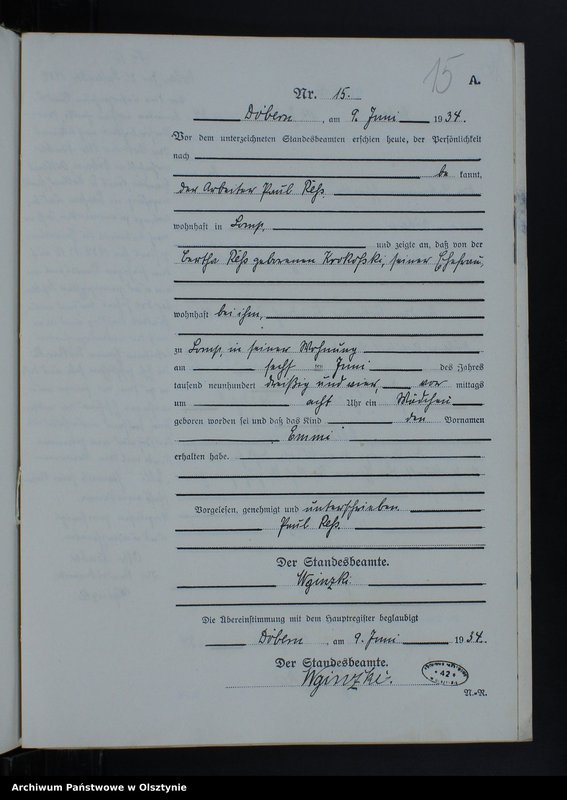 15
A.
Nr. 15.
Döbern, am 9. Juni 1934.
Vor dem unterzeichneten Standesbeamten erschien heute, der Persönlichkeit
nach
be kannt,
der Arbeiter Paul
wohnhaft in Lomp,
und zeigte an, daß von der
Bertha geborenen Krokoßki, seiner Ehefrau,
wohnhaft bei ihm,
zu Lomp, in seiner Wohnung
am sechsten Juni des Jahres
tausend neunhundert dreißig und vier, vor mittags
um acht Uhr ein Mädchen
geboren worden sei und daß das Kind den Vornamen
Emmi
erhalten habe.
Vorgelesen, genehmigt und unterschrieben
Paul
Der Standesbeamte.
Wginzki.
Die Übereinstimmung mit dem Hauptregister beglaubigt
Döbern, am 9. Juni 1934.
Der Standesbeamte.
Wginzki.
42
N.-R.
Archiwum Państwowe w Olsztynie